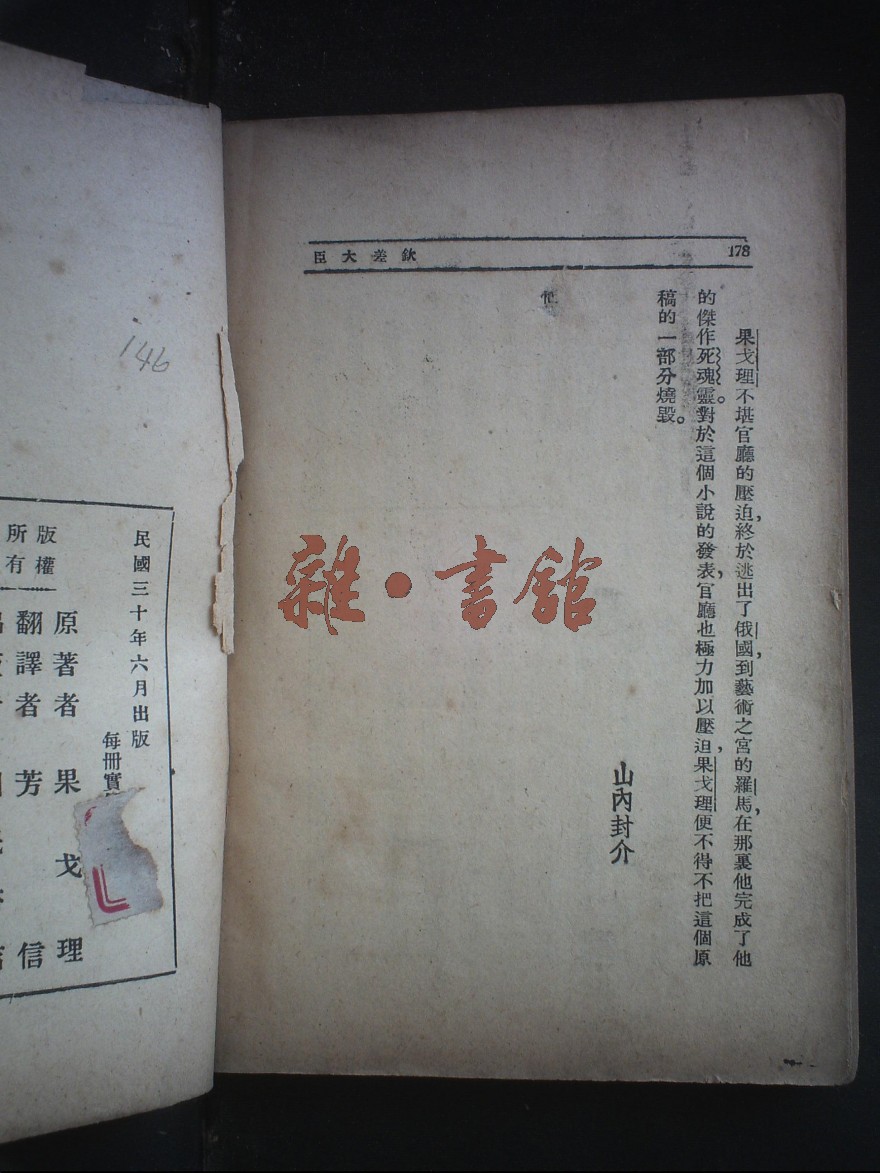 欽差大臣
178
果戈理不堪官廳的壓迫，終於逃出了俄國，到藝術之宮的羅馬，在那裏他完成了他
的傑作死魂靈。對於這個小說的發表，官廳也極力加以壓迫，果戈理便不得不把這個原
稿的一部分燒毀。
山內封介
雜·書館
146
民國三十年六月出版
每冊實
版權
所有
原著者 果戈理
翻譯者 芳信